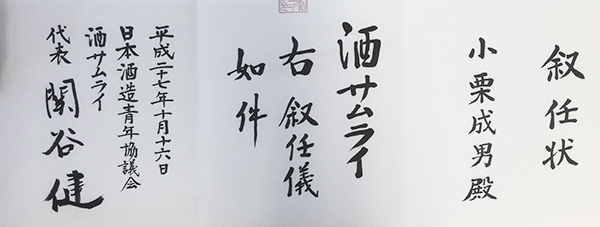 叙任状
小栗成男殿
酒サムライ
右叙任儀
如件
平成二十七年十月十六日
日本酒造青年協議会
酒サムライ
代表 関谷健